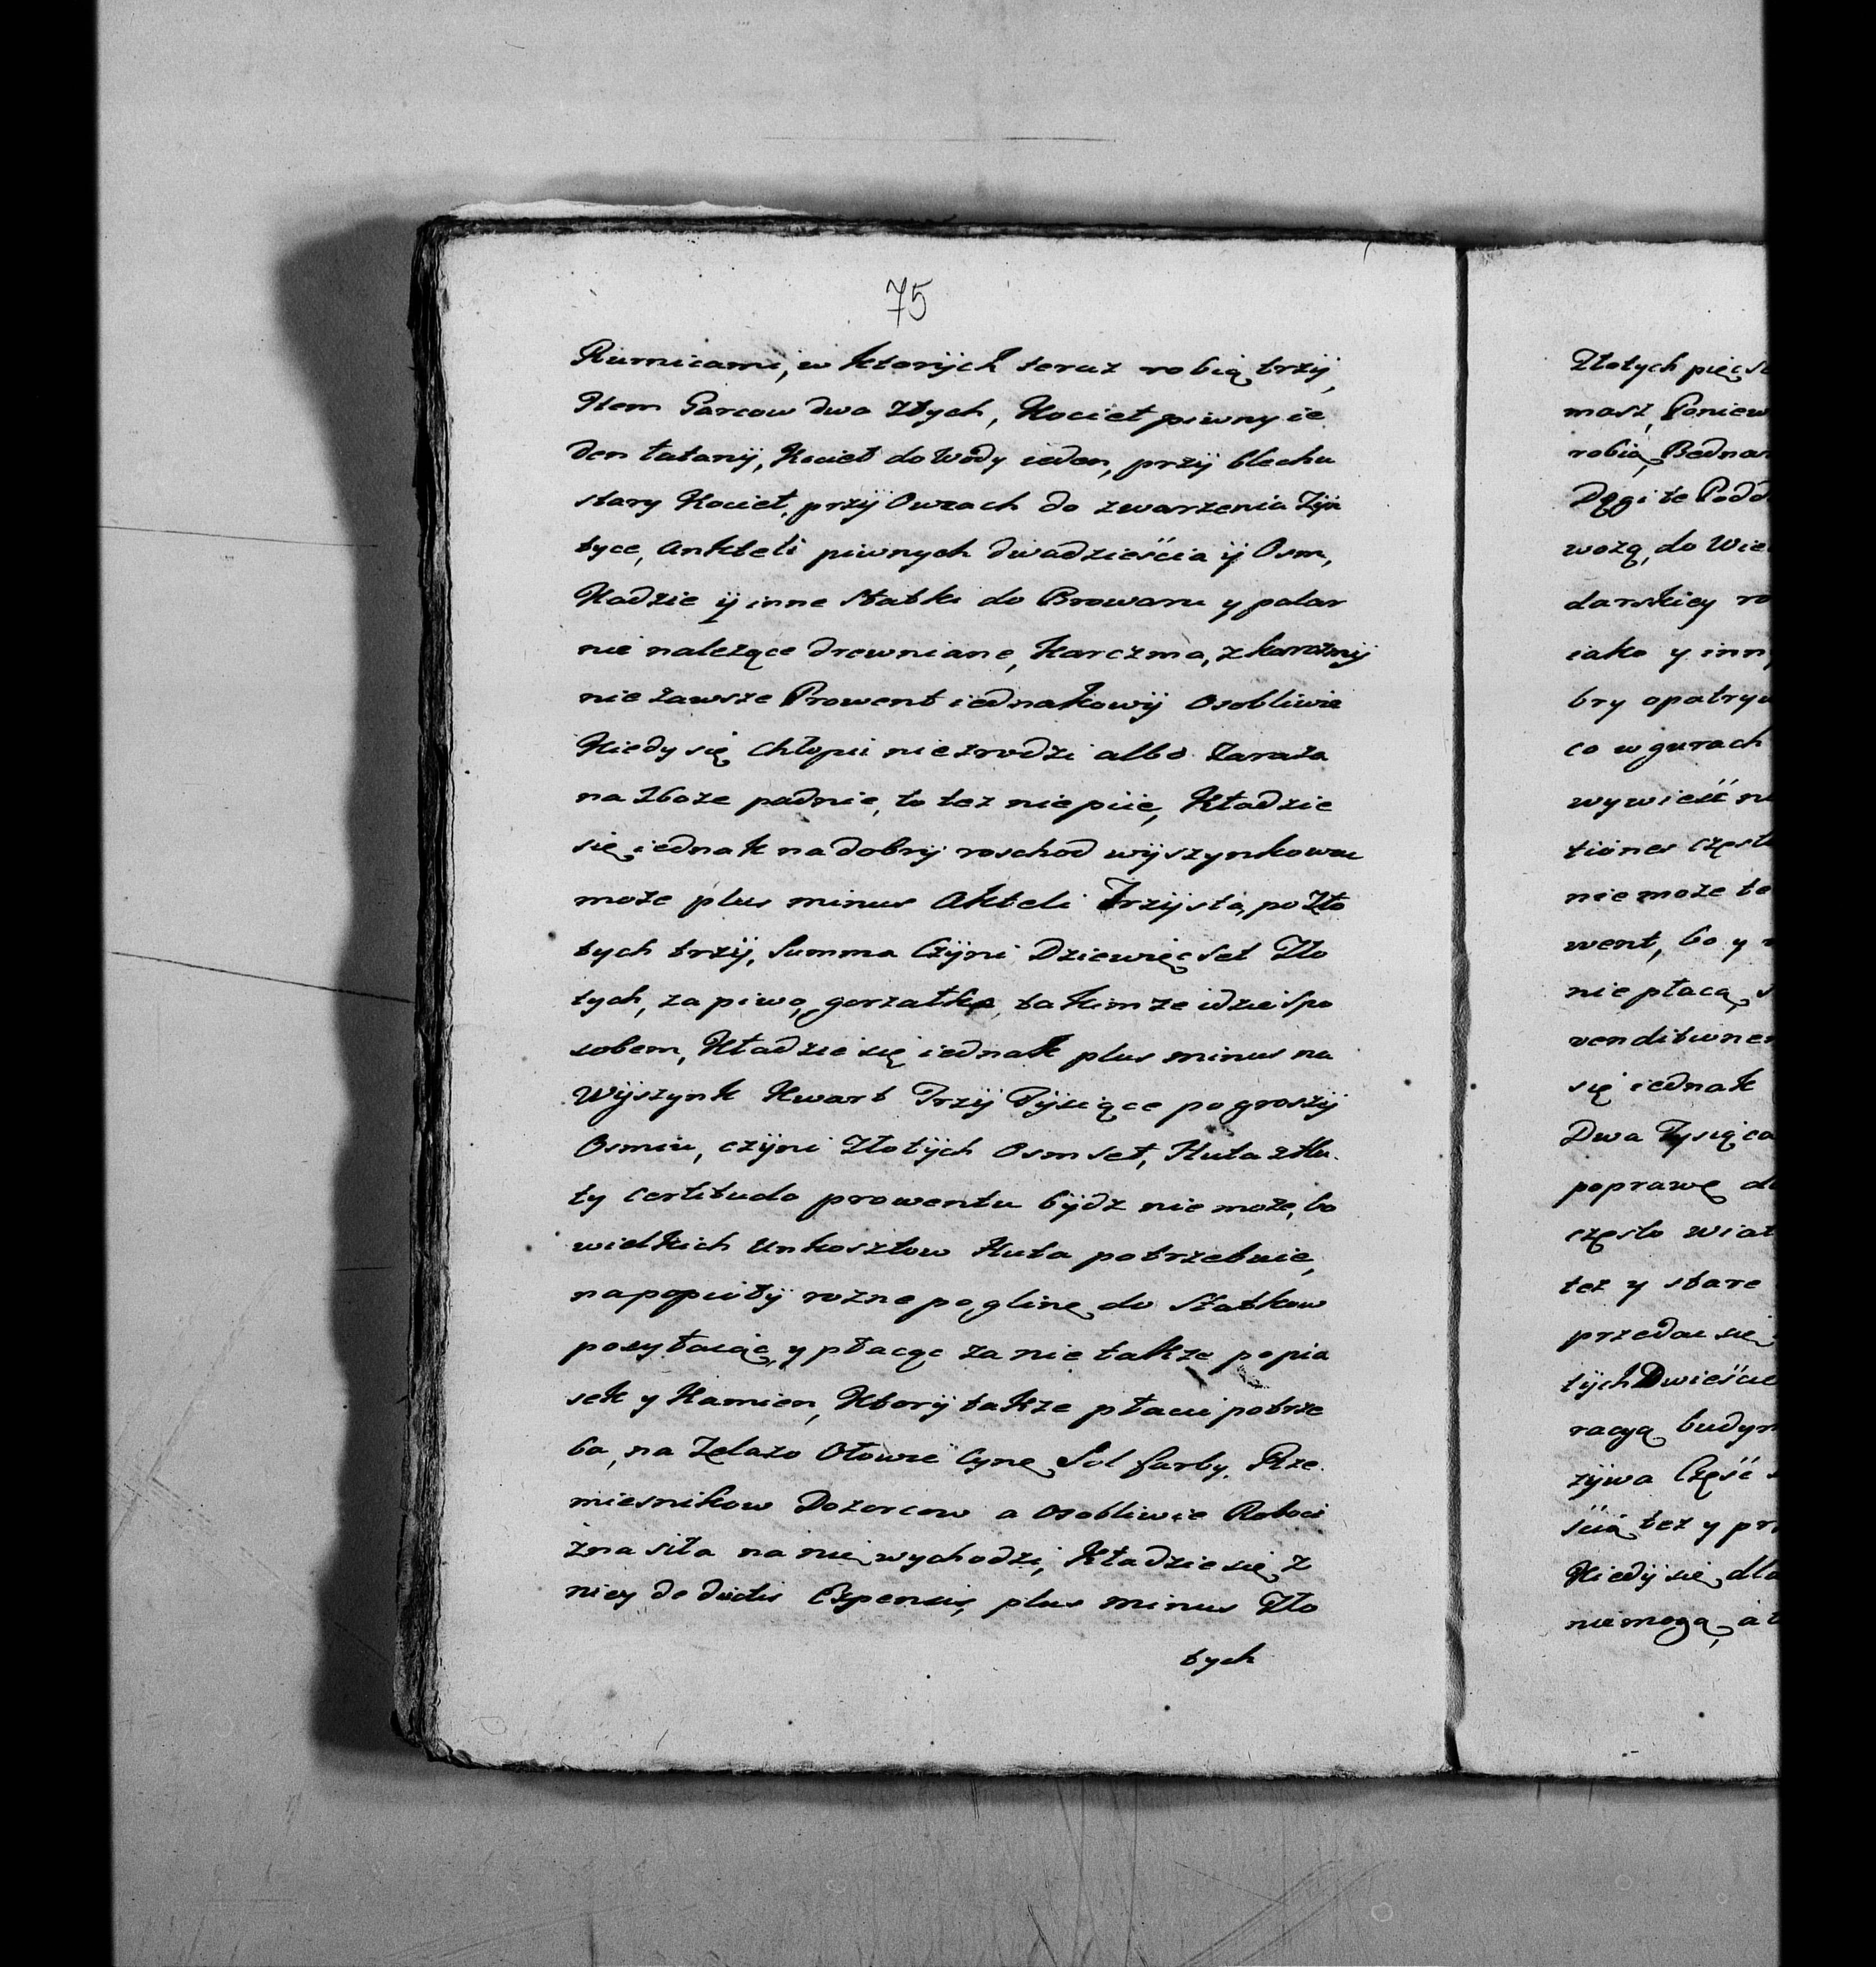 75
Rurnicami, w ktorÿch teraz robią trzÿ,
Item Garcow dwa Złych, Kocieł piwny ie
den łatanÿ, Kocieł do Wody ieden, przÿ blechu
stary Kocieł, przÿ Owcach do zwarzenia Zÿn
tyce, Ankteli piwnych dwadzieścia ÿ Osm,
Kadzie ÿ inne Statki do Browaru y palar
nie nalezące drewniane, Karczma, z
nie zawsze Prowent iednakowÿ osobliwie
Kiedy się chłopu niezrodzi albo Zaraza
na Zboze padnie, to tez nie piie, Kładzie
się iednak na dobrÿ roschod wÿszynkowac
moze plus minus Akteli Trzÿsta, po Zło
tych trzÿ, Summa Czÿni Dziewięcset Zło
tych, za piwo, gorzałka takimze idzie spo
sobem, Kładzie się iednak plus minus na
Wÿszynk Kwart Trzÿ Tÿsiące po groszÿ
Osmiu, czÿni Złotÿch Osmset, Huta z Hu
ty certitudo prowentu bÿdz nie moze, bo
wielkich unkosztow Huta potrzebuie,
na popiołÿ rozne po glinę do Statkow
posyłaiąc, y płacąc za nie takze po pia
sek y Kamien, Ktorÿ takze płacic potrze
ba, na Zelazo Ołowie Cynę Sol farby. Rze
miesnikow Dozorcow a osobliwie Roboci
zna siła na nię wychodzi, Kładzie się z
niey deductis Expensis, plus minus Zło
tych
Złotych pięcse
masz, Poniew
robią Bednar
Dęgi te Podd
wozą, do Wie
darskiey ro
iako y inn
bry opatry
co w gurach
wywieść n
tiones często
nie moze be
went, bo y
nie płacą, s
venditionem
się iednak
Dwa Tysiąca
poprawę do
często wiat
tez y stare
przedac się
tÿch Dwieście
racyą budyn
zÿwa Część
ścia tez y pr
Kiedÿ się dla
niemogą, a t